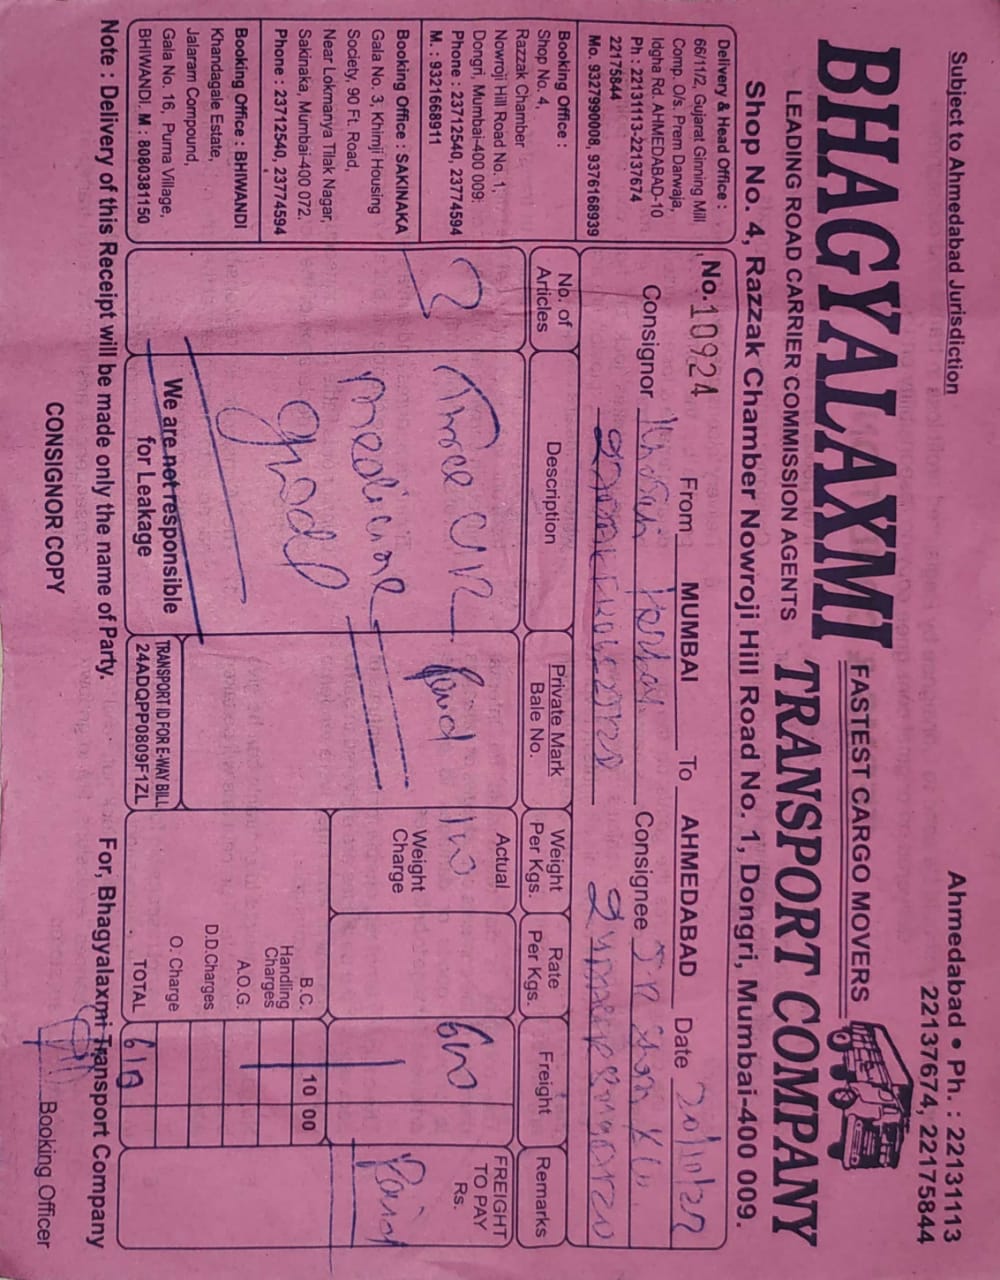 Subject to Ahmedabad Jurisdiction
Ahmedabad • Ph. : 22131113
22137674, 22175844
BHAGYALAXMI
FASTEST CARGO MOVERS
TRANSPORT COMPANY
LEADING ROAD CARRIER COMMISSION AGENTS
Shop No. 4, Razzak Chamber Nowroji Hill Road No. 1, Dongri, Mumbai-400 009.
Delivery & Head Office :
66/11/2, Gujarat Ginning Mill
Comp. O/s. Prem Darwaja,
Idgha Rd. AHMEDABAD-10
Ph : 22131113-22137674
22175844
Mo. 9327990008, 9376168939
Booking Office :
Shop No. 4,
Razzak Chamber
Nowroji Hill Road No. 1,
Dongri, Mumbai-400 009.
Phone : 23712540, 23774594
M. : 9321668911
Booking Office : SAKINAKA
Gala No. 3, Khimji Housing
Society, 90 Ft. Road,
Near Lokmanya Tilak Nagar,
Sakinaka, Mumbai-400 072.
Phone : 23712540, 23774594
Booking Office : BHIWANDI
Khandagale Estate,
Jalaram Compound,
Gala No. 16, Purna Village,
BHIWANDI. M : 8080381150
No. 10924 From MUMBAI To AHMEDABAD Date
Consignor Consignee
No. of Articles
Description
Private Mark Bale No.
Weight Per Kgs.
Rate Per Kgs.
Freight
Remarks
3
Three
medicine
paid
Actual
Weight Charge
FREIGHT TO PAY Rs.
Paid
B.C. 10 00
Handling Charges
A.O.G.
D.D.Charges
O. Charge
TOTAL 610
We are not responsible
for Leakage
TRANSPORT ID FOR E-WAY BILL
24ADQPP0809F1ZL
Note : Delivery of this Receipt will be made only the name of Party.
For, Bhagyalaxmi Transport Company
CONSIGNOR COPY
Booking Officer